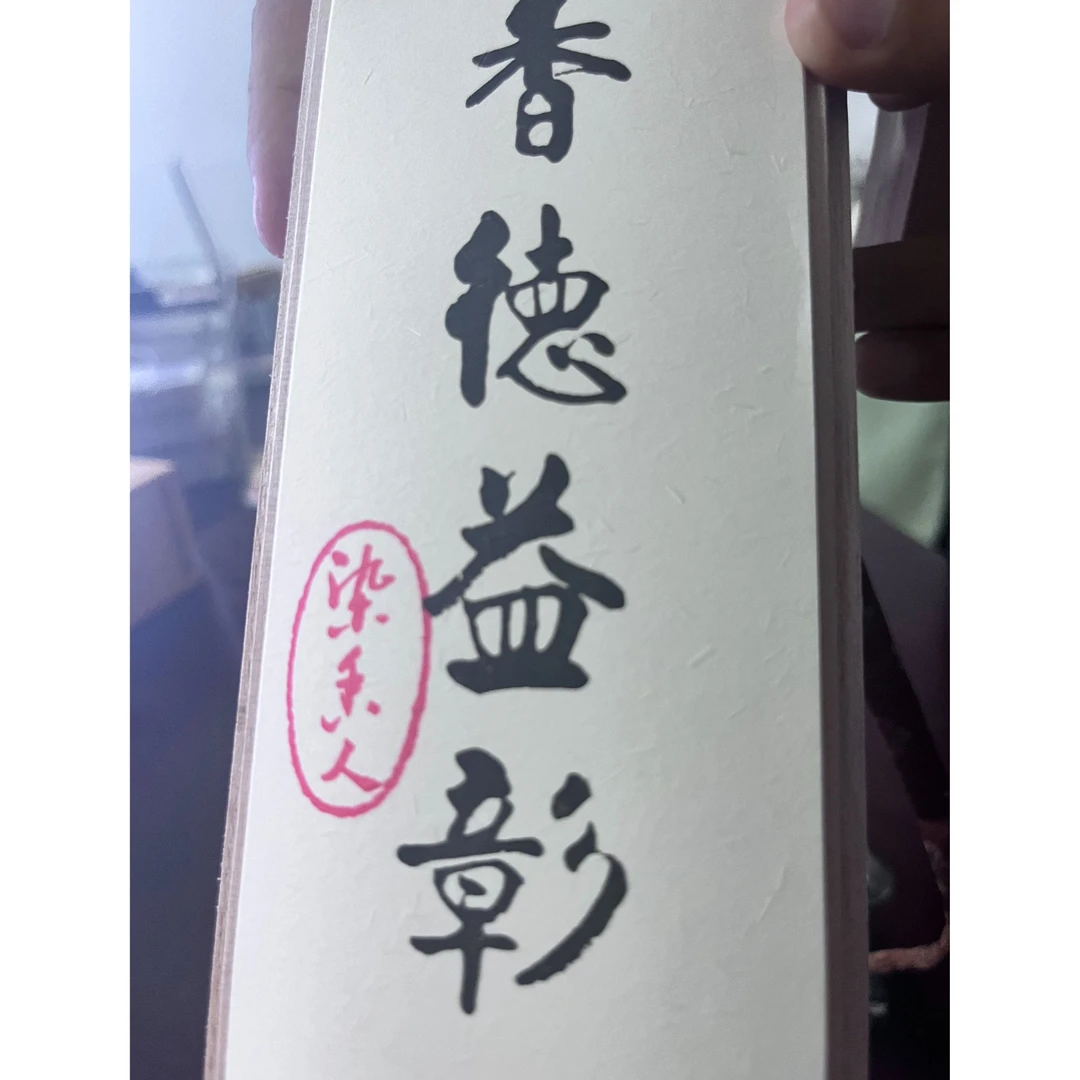 香德益彰
染香人